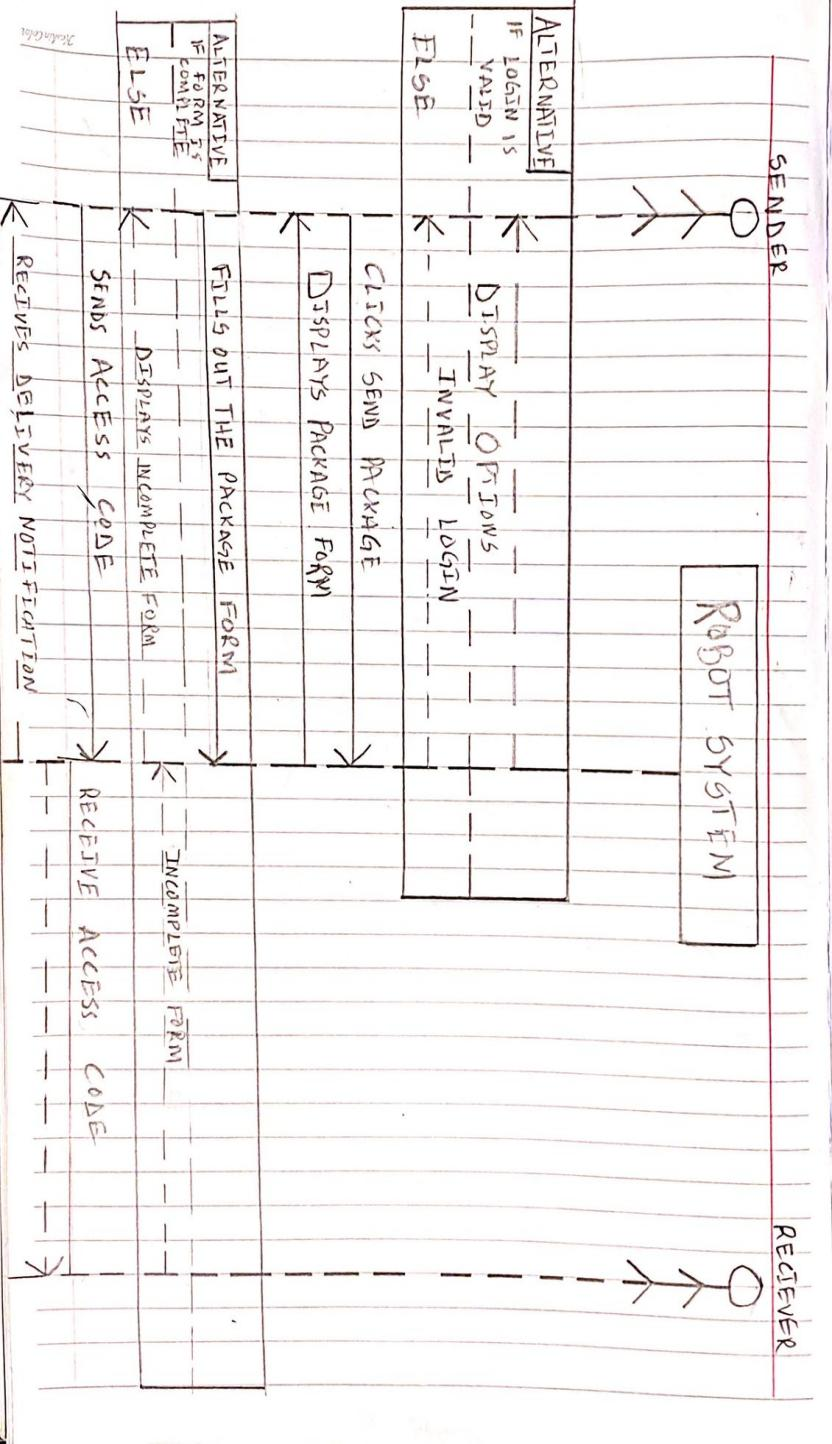 SENDER
ROBOT SYSTEM
RECIEVER
ALTERNATIVE
IF LOGIN IS
VALID
DISPLAY OPTIONS
ELSE
INVALID LOGIN
CLICKS SEND PACKAGE
DISPLAYS PACKAGE FORM
ALTERNATIVE
IF FORM IS
COMPLETE
FILLS OUT THE PACKAGE FORM
ELSE
DISPLAYS INCOMPLETE FORM
INCOMPLETE FORM
SENDS ACCESS CODE
RECEIVE ACCESS CODE
RECIVES DELIVERY NOTIFICATION